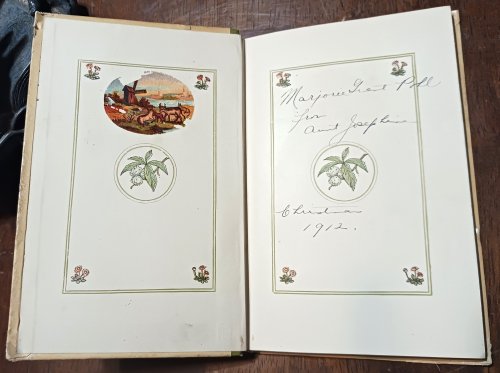 Marjorie Trent
for
Aunt Josephine
Christmas
1912.